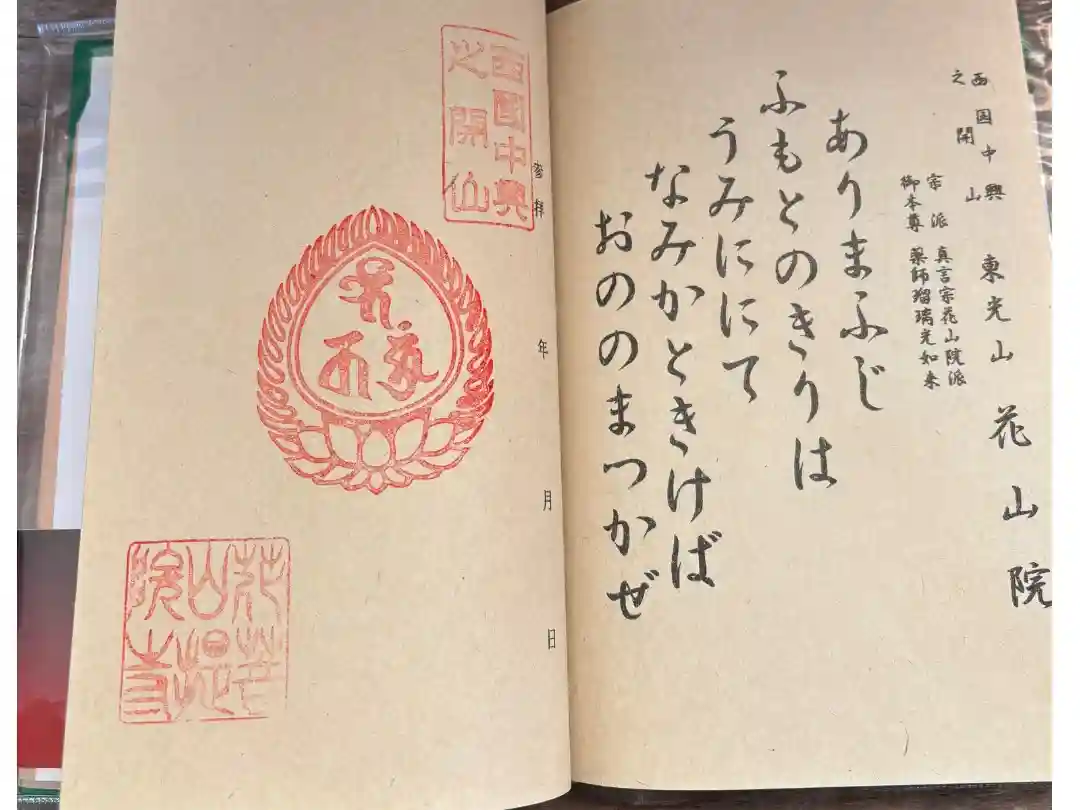 西国中興
之開山
東光山 花山院
宗派 真言宗花山院派
御本尊 薬師瑠璃光如来
ありまふじ
ふもとのきりは
うみににて
なみかときけば
おののまつかぜ
参拝 年 月 日
西國中興
之開山
花山院
菩提寺